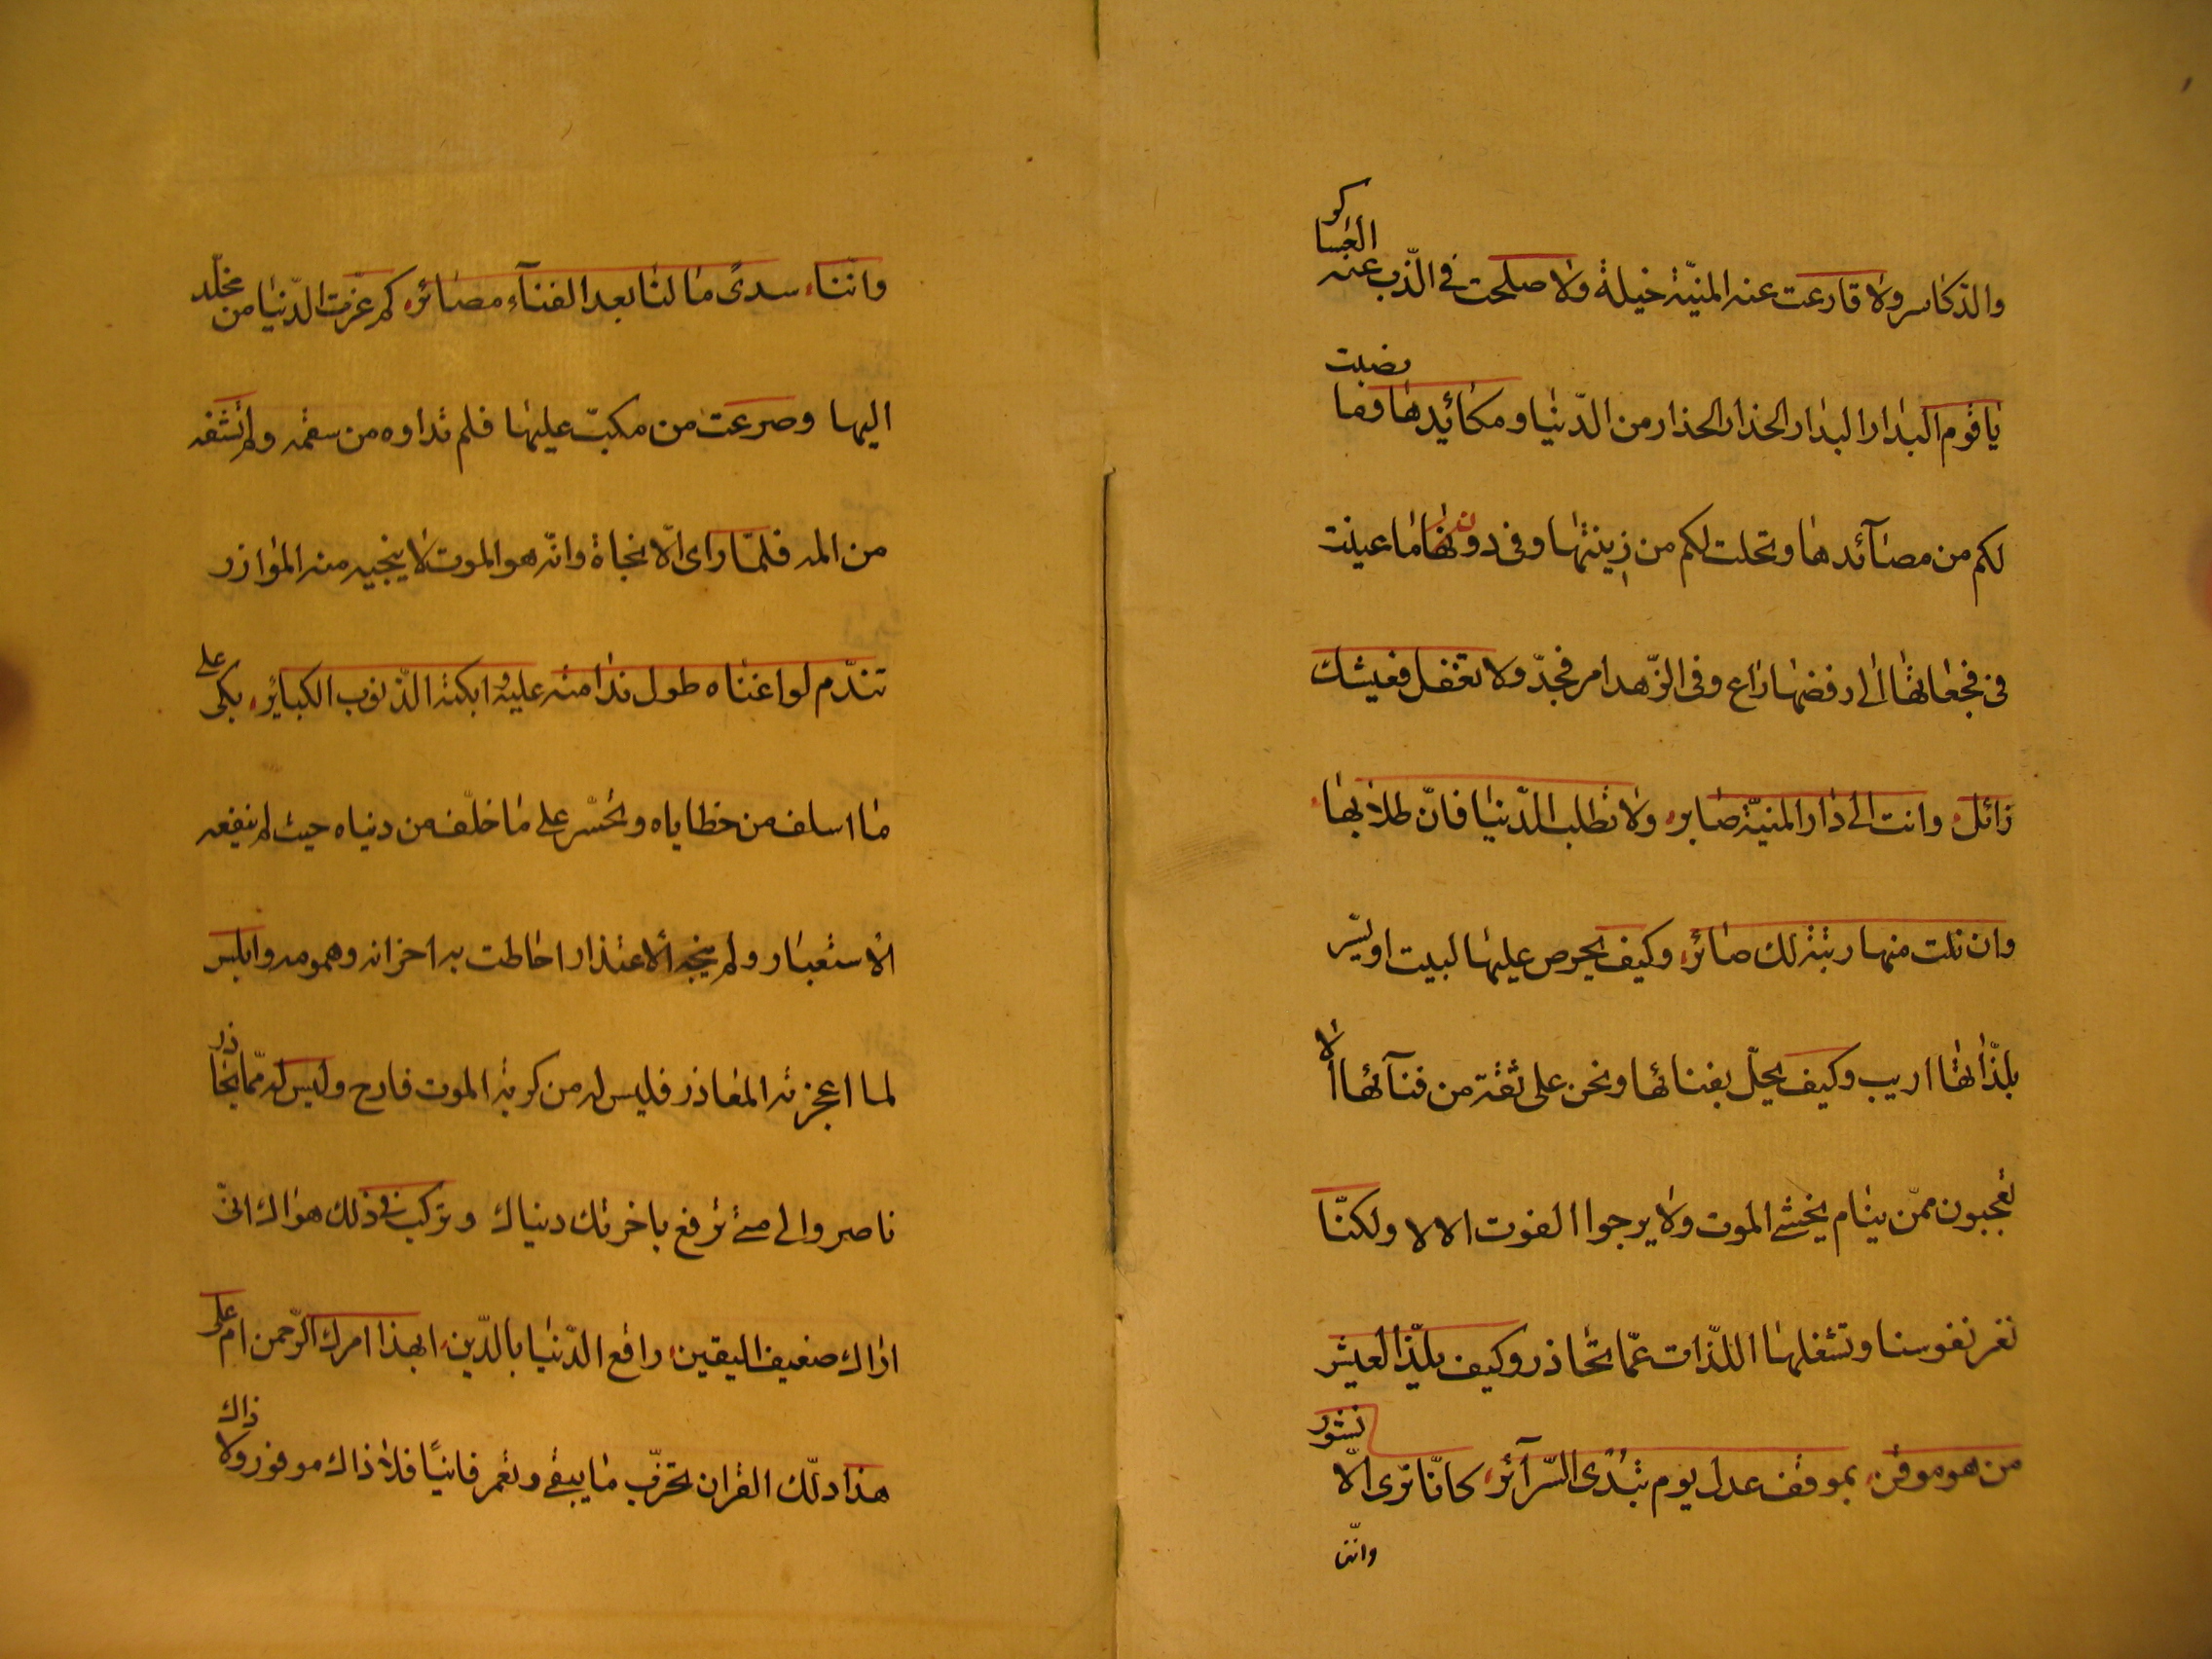 والذكاسر ولا قارعت عنه المنيّة خيلة ولا صلحت فى الذّب عنه العساكر
يا قوم البدار البدار الحذار الحذار من الدّنيا ومكائدها وما نصبت
لكم من مصآئدها وتحلت لكم من زينتها وفى دون ما عينت
فى فجعاتها الى رفضها داع وفى الزّهد امر فجدّ ولا تغفل فعيشك
زائل وانت الى دار المنيّة صاير ولا تطلب الدّنيا فانّ طلابها
وان نلت منها رتبة لك ضائر وكيف يحرص عليها لبيت او يسّر
بلذّاتها اريب وكيف يحلّ بفنائها ونحن على ثقة من فنآئها الا
تعجبون ممّن ينام يخشى الموت ولا يرجوا الفوت الا لا ولكنّا
تغر نفوسنا وتشغلها اللذّات عمّا تحاذر وكيف يلذّ العيش
من هو موقن بموقف عدل يوم تبدى السّرآئر كانّا نرى الّا نشور
وانّن
وانّنا سدى ما لنا بعد الفنآء مصائر كم غرّت الدّنيا من مخلّد
اليها وصرعت من مكبّ عليها فلم تداوه من سقمه ولم تشفه
من المه فلمّا راى الّا نجاة وانّه هو الموت لا ينجيه منه الموازر
تندّم لو اغناه طول ندامته عليه وابكته الذّنوب الكبائر بكى على
ما اسلف من خطاياه وتحسّر على ما خلّف من دنياه حيث لم ينفعه
الاستعبار ولم ينجه الاعتذار احاطت به احزانه وهمومه وابلس
لما اعجزته المعاذر فليس له من كربة الموت فارح وليس له ممّا يحاذر
ناصر والى متى ترفع باخرتك دنياك وتركب فى ذلك هواك انّى
اراك ضعيف اليقين راقع الدّنيا بالدّين ابهذا امرك الرّحمن ام على
هذا دلّك القران تخرّب ما يبقى وتعمر فانيًا فلا ذاك موفور ولا ذاك